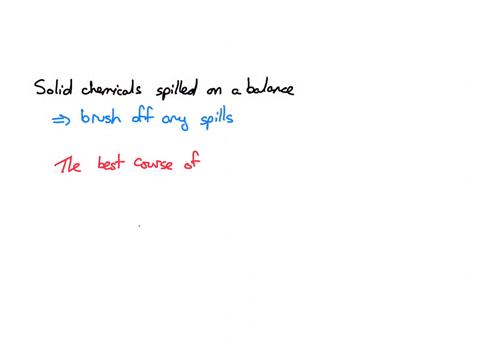 Solid chemicals spilled on a balance
⇒ brush off any spills
The best course of